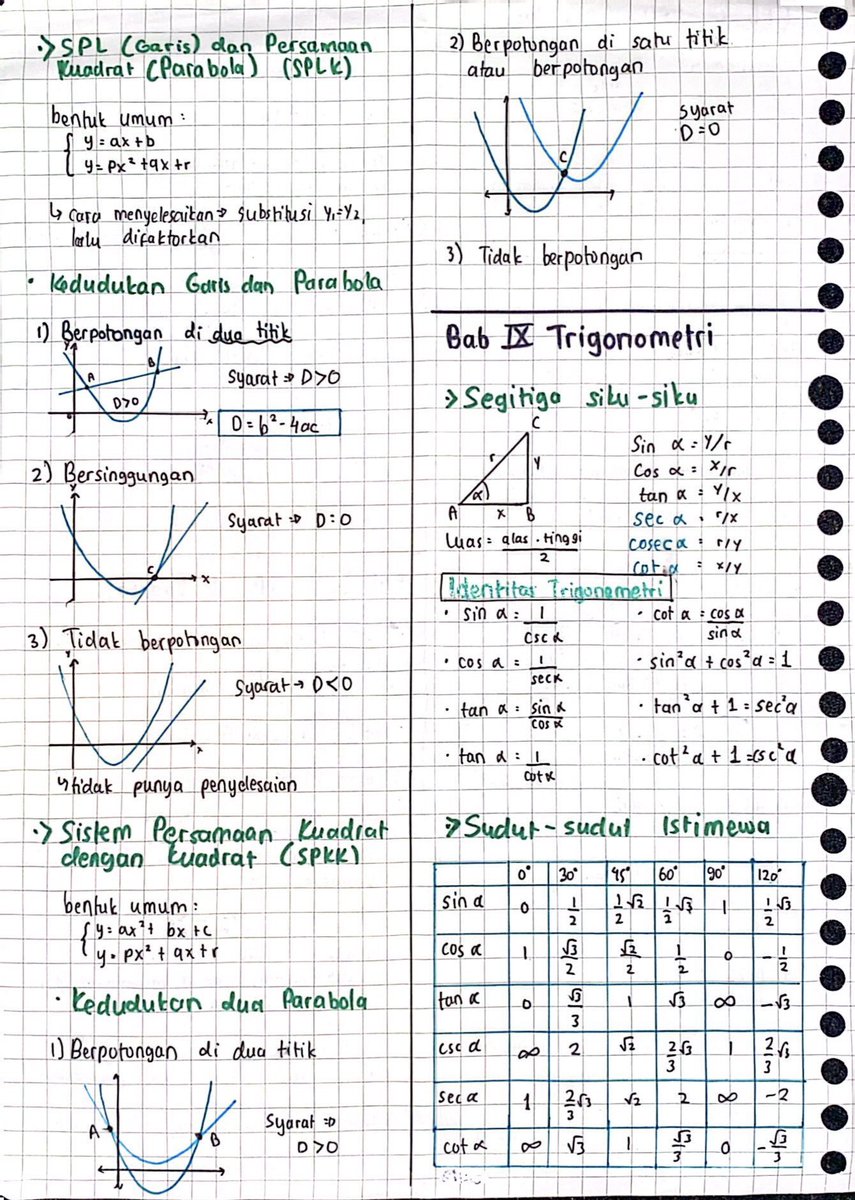 ·> SPL (Garis) dan Persamaan
Kuadrat (Parabola) (SPLK)
bentuk umum :
{ y = ax + b
{ y = px² + qx + r
↳ cara menyelesaikan ⇒ substitusi y₁=y₂,
lalu difaktorkan
• Kedudukan Garis dan Parabola
1) Berpotongan di dua titik
y
A
B
D>0
0
x
Syarat ⇒ D>0
D = b² - 4ac
2) Bersinggungan
y
C
x
Syarat ⇒ D = 0
3) Tidak berpotongan
y
x
Syarat → D<0
↳ tidak punya penyelesaian
·> Sistem Persamaan Kuadrat
dengan Kuadrat (SPKK)
bentuk umum :
{ y = ax² + bx + c
{ y = px² + qx + r
• Kedudukan dua Parabola
1) Berpotongan di dua titik
A
B
Syarat ⇒
D>0
2) Berpotongan di satu titik
atau berpotongan
C
Syarat
D=0
3) Tidak berpotongan
Bab IX Trigonometri
> Segitiga siku-siku
A
B
C
r
y
x
α
Luas = alas . tinggi / 2
Sin α = y/r
Cos α = x/r
tan α = y/x
sec α = r/x
cosec α = r/y
cot α = x/y
Identitas Trigonometri
• sin α = 1/csc α
• cos α = 1/sec α
• tan α = sin α/cos α
• tan α = 1/cot α
• cot α = cos α/sin α
• sin²α + cos²α = 1
• tan²α + 1 = sec²α
• cot²α + 1 = csc²α
> Sudut-sudut Istimewa
0° 30° 45° 60° 90° 120°
sin α 0 1/2 1/2√2 1/2√3 1 1/2√3
cos α 1 √3/2 √2/2 1/2 0 -1/2
tan α 0 √3/3 1 √3 ∞ -√3
csc α ∞ 2 √2 2/3√3 1 2/3√3
sec α 1 2/3√3 √2 2 ∞ -2
cot α ∞ √3 1 √3/3 0 -√3/3